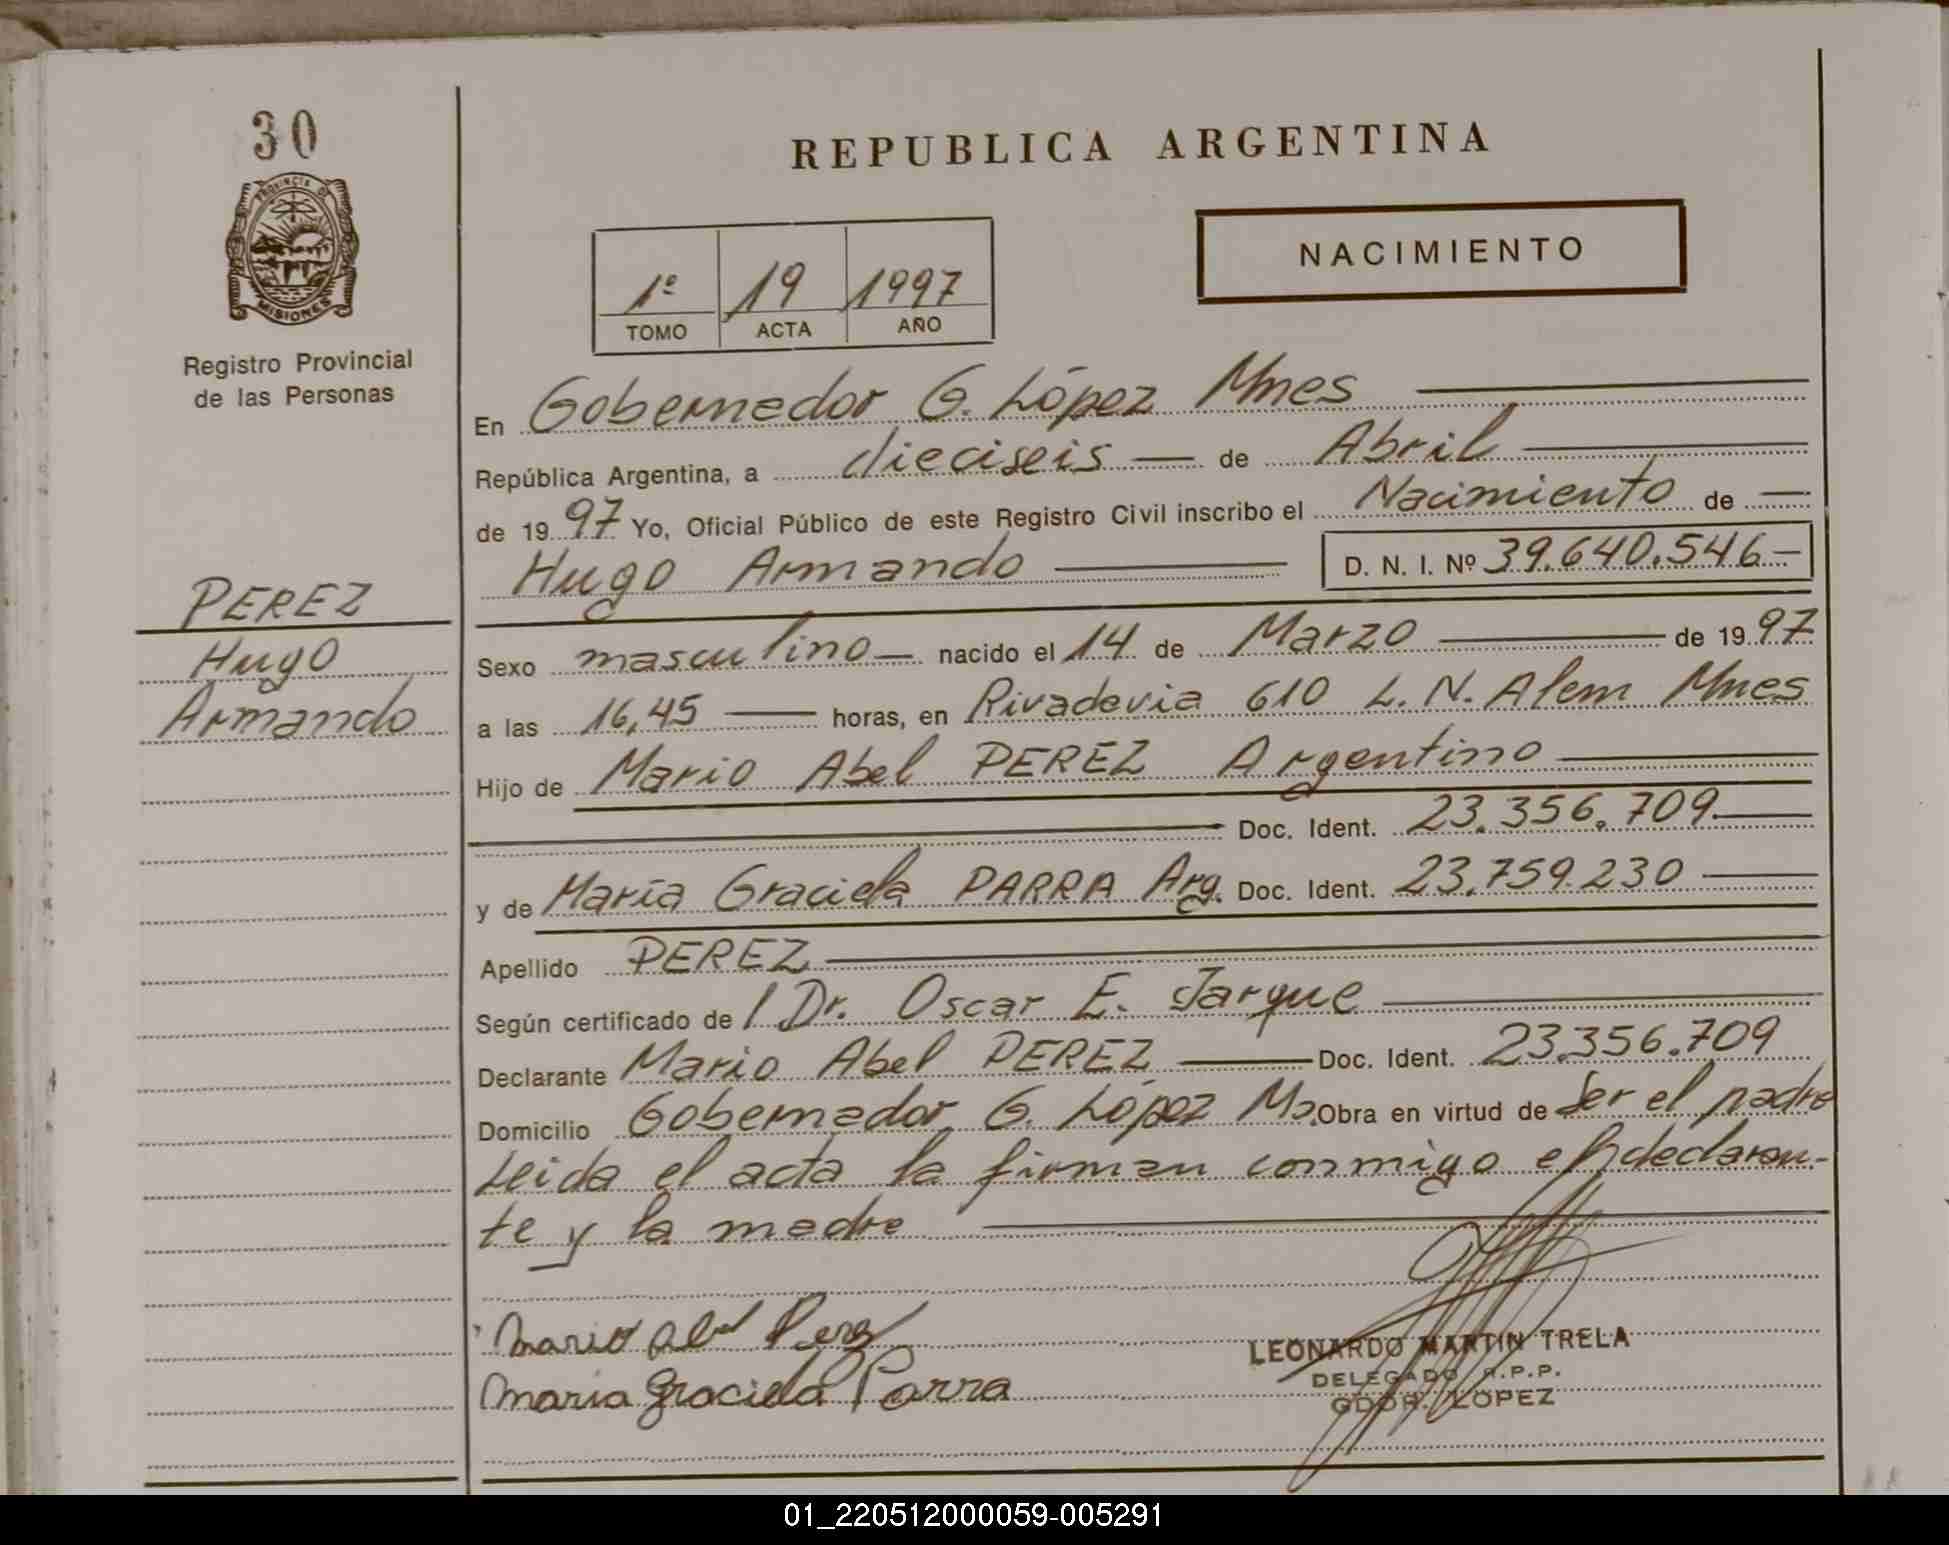 30
PROVINCIA DE
MISIONES
Registro Provincial
de las Personas
REPUBLICA ARGENTINA
NACIMIENTO
1º 19 1997
TOMO ACTA AÑO
En Gobernador G. López Mnes
República Argentina, a dieciseis — de Abril
de 1997 Yo, Oficial Público de este Registro Civil inscribo el Nacimiento de —
Hugo Armando D. N. I. Nº 39.640.546.-
PEREZ
Hugo
Armando
Sexo masculino — nacido el 14 de Marzo de 1997
a las 16,45 horas, en Rivadavia 610 L. N. Alem Mnes
Hijo de Mario Abel PEREZ Argentino
Doc. Ident. 23.356.709.
y de María Graciela PARRA Arg. Doc. Ident. 23.759.230
Apellido PEREZ
Según certificado del Dr. Oscar E. Jarque
Declarante Mario Abel PEREZ Doc. Ident. 23.356.709
Domicilio Gobernador G. López Ms. Obra en virtud de Ser el padre
Leida el acta la firman conmigo el declaran-
te y la madre
Mario Abel Perez
Maria Graciela Parra
LEONARDO MARTIN TRELA
DELEGADO R.P.P.
GDOR. LOPEZ
01_220512000059-005291